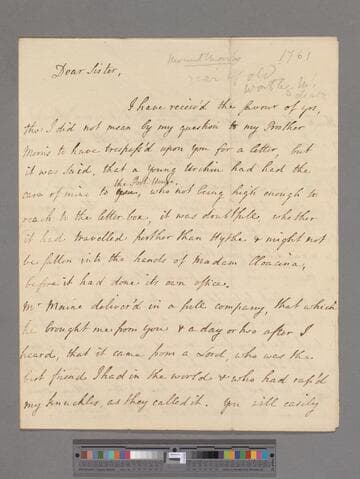 Mount Morris 1761
near
old
worthy Mr
Dear Sister,
I have receiv'd the favour of yrs,
tho' I did not mean by my question to my Brother
Morris to have trespass'd upon you for a letter, but
it was said, that a young Urchin had had the
the Post House,
care of mine to you, who not being high enough to
reach to the letter box, it was doubtfull, whether
it had travelled further than Hythe & might not
be fallen into the hands of Madam Cloacina,
before it had done its own office.
Mr deliver'd in a full company, that which
he brought me from you & a day or two after I
heard, that it came from a Lord, who was the
best friend I had in the world & who had rap'd
my knuckles, as they called it. you will easily